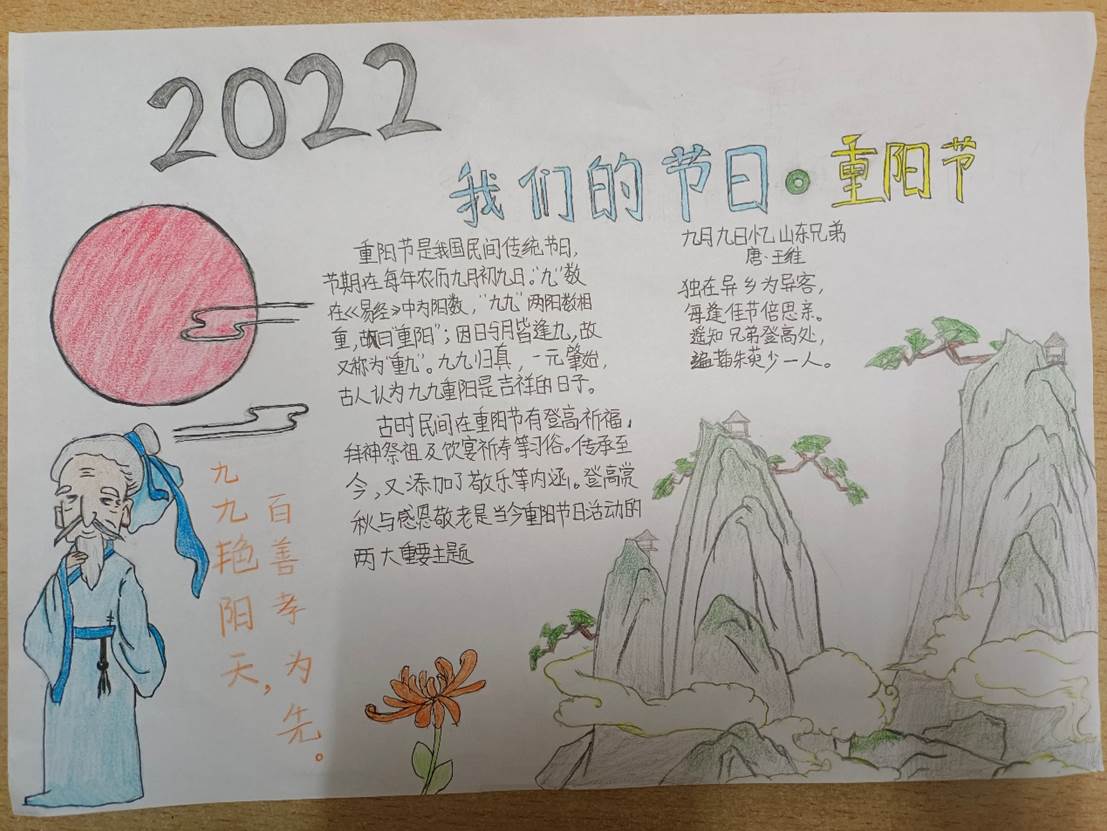 2022
我们的节日·重阳节
重阳节是我国民间传统节日,
节期在每年农历九月初九日。“九”数
在《易经》中为阳数,“九九”两阳数相
重,故曰“重阳”;因日与月皆逢九,故
又称为“重九”。九九归真,一元肇始,
古人认为九九重阳是吉祥的日子。
古时民间在重阳节有登高祈福,
拜神祭祖及饮宴祈寿等习俗。传承至
今,又添加了敬乐等内涵。登高赏
秋与感恩敬老是当今重阳节日活动的
两大重要主题
九月九日忆山东兄弟
唐·王维
独在异乡为异客,
每逢佳节倍思亲。
遥知兄弟登高处,
遍着朱萸少一人。
九九艳阳天,
百善孝为先。